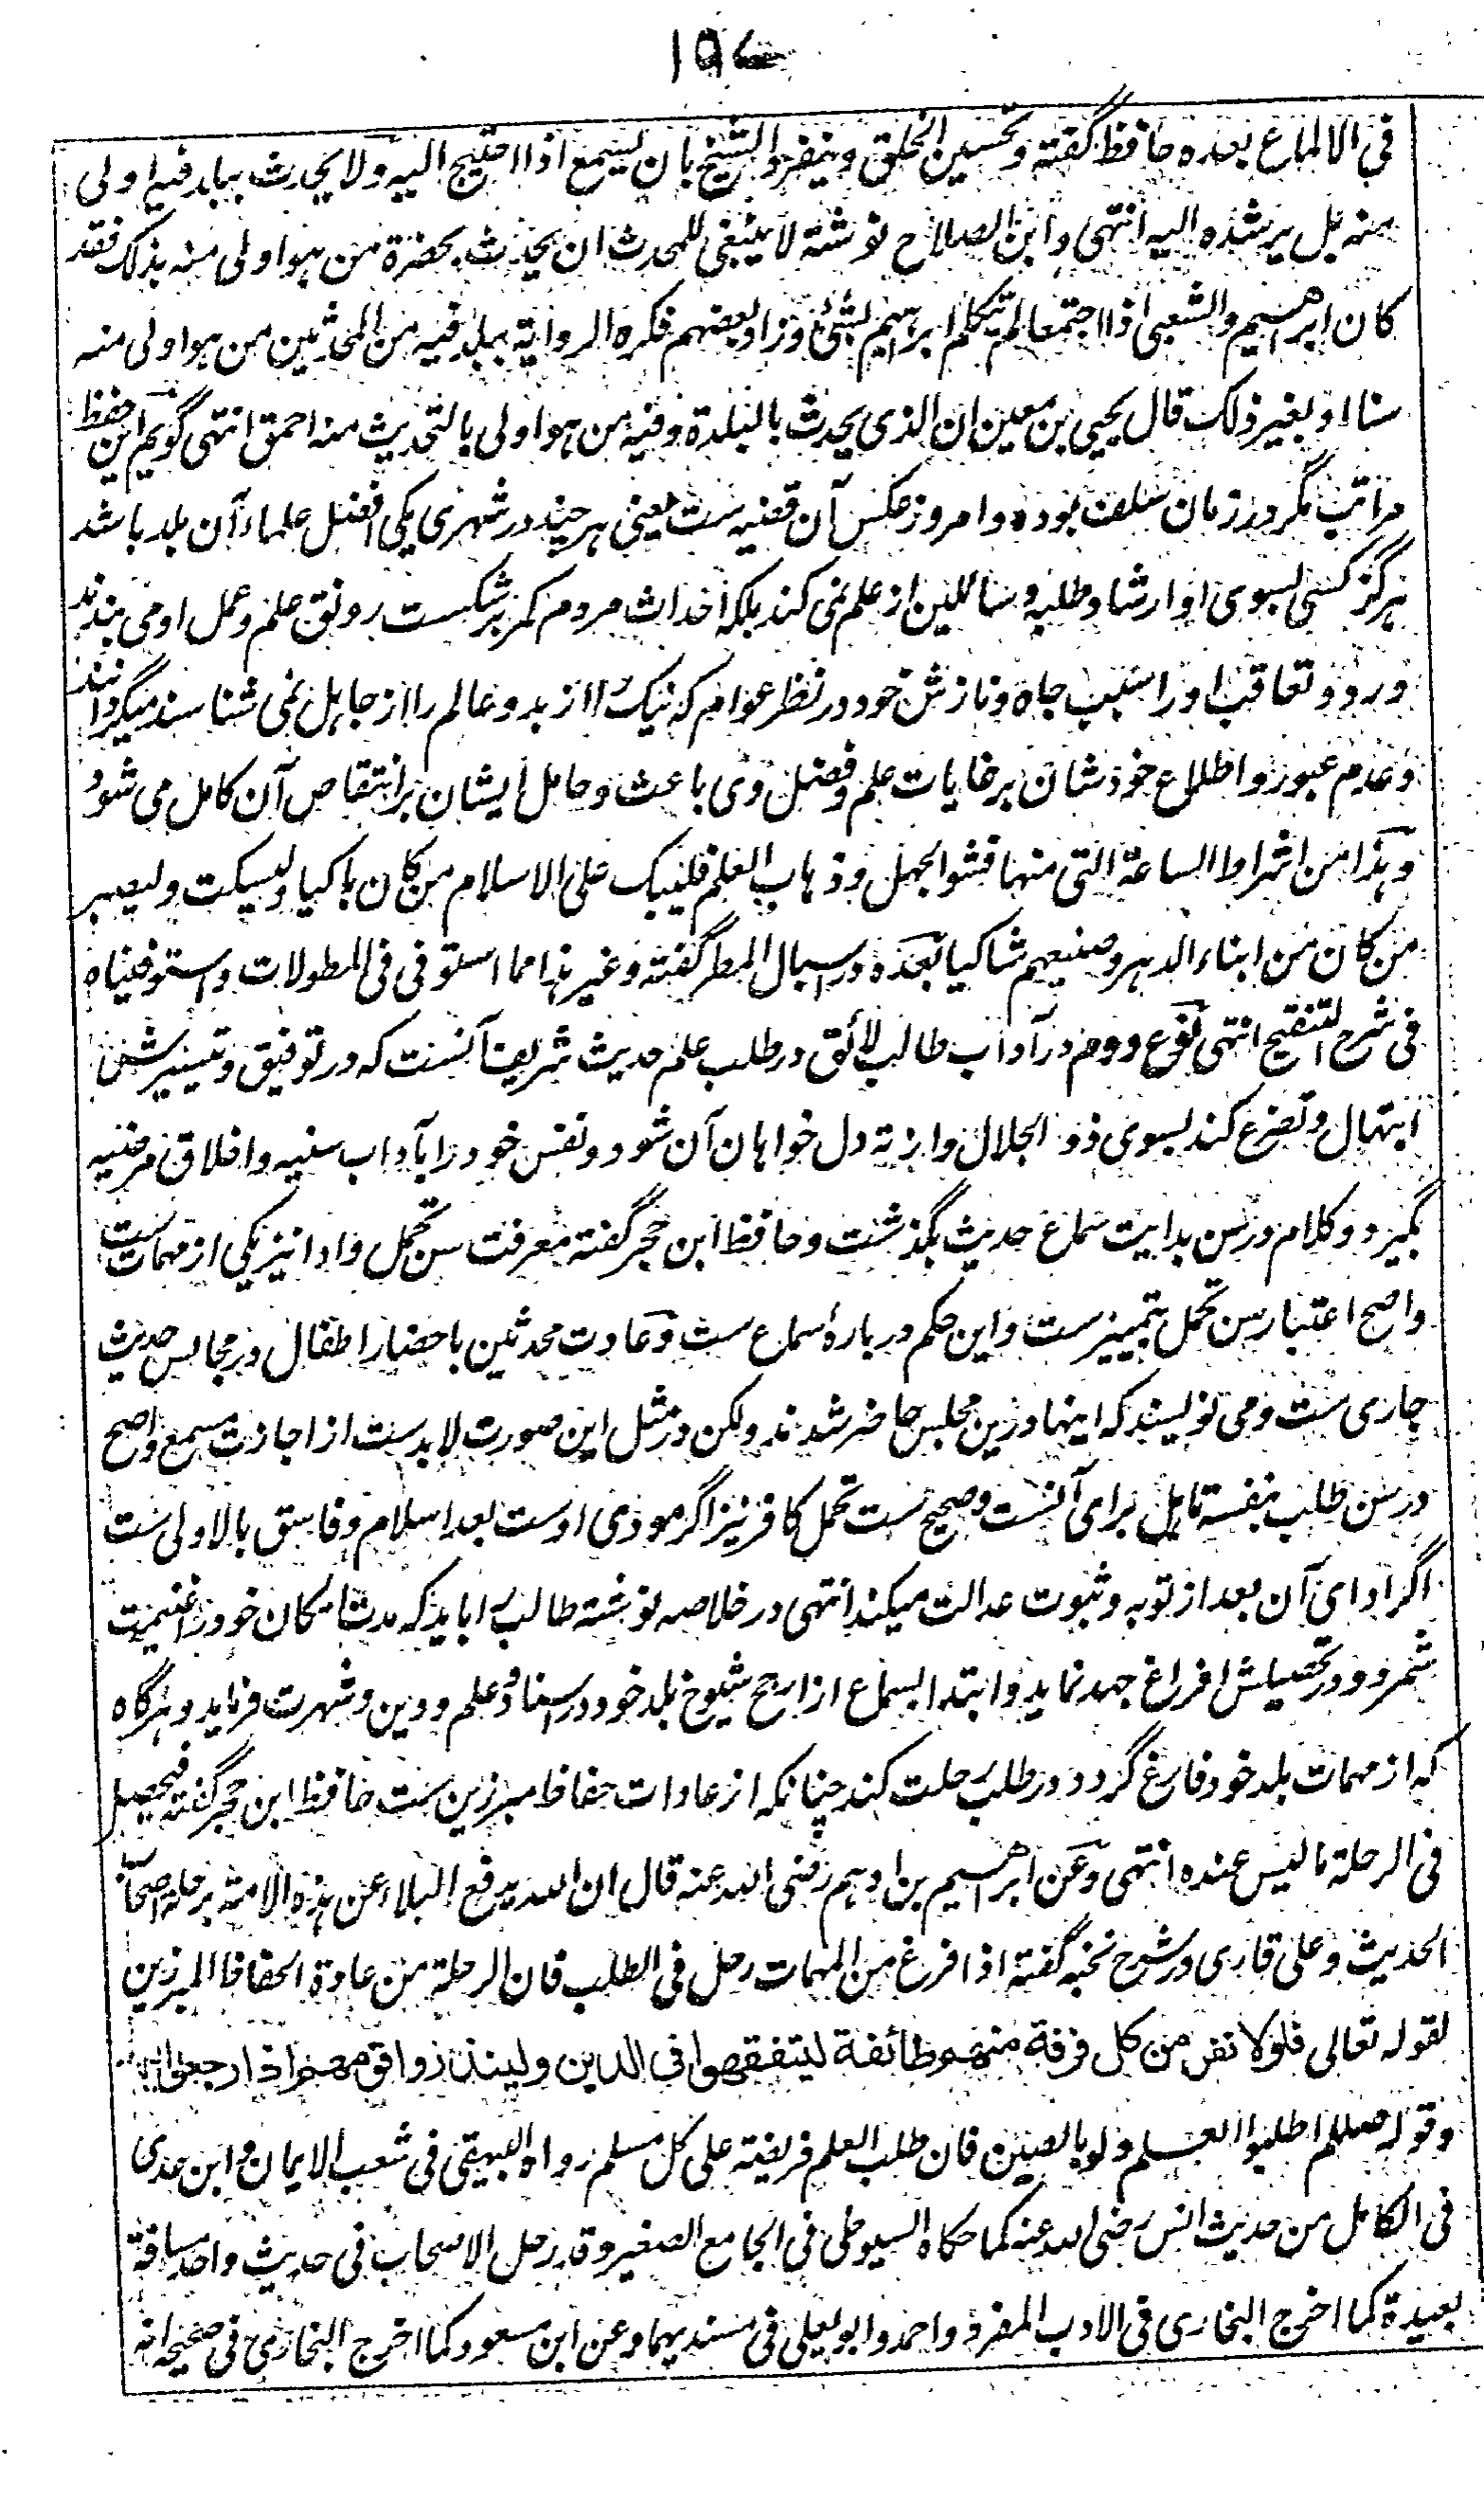 ۱۵۷
فی الالماع بعده حافظ گفته و تحسین الخلق و ینفرد الشیخ بان یسمع اذا احتیج الیه ولا یحدث ببلد فیه اولی
منه بل یرشده الیه انتهی و ابن الصلاح نوشته لا ینبغی للمحدث ان یحدث بحضرة من هو اولی منه بذلک فقد
کان ابراهیم والشعبی اذا اجتمعا لم یتکلم ابراهیم بشئ وزاد بعضهم فکره الروایة ببلد فیه من المحدثین من هو اولی منه
سنا او بغیر ذلک قال یحیی بن معین ان الذی یحدث بالبلدة وفیه من هو اولی بالتحدیث منه احمق انتهی گویم این حفظ
مراتب مگر در زمان سلف بوده و امروز عکس آن قضیه ست یعنی هر چند در شهری یکی افضل علماء آن بلد باشد
هرگز کسی بسوی او ارشاد طلبه و سائلین از علم نمی کند بلکه احداث مردم کمر بر شکست رونق علم و عمل او می بندند
و رد و تعاقب او را سبب جاه و نازش خود در نظر عوام که نیک را از بد و عالم را از جاهل نمی شناسند میگردانند
و عدم عبور و اطلاع خودشان بر خایات علم و فضل وی باعث و حامل ایشان بر انتقاص آن کامل می شود
وهذا من اشراط الساعة التی منها فشو الجهل وذهاب العلم فلیبک علی الاسلام من کان باکیا ولیسکت ولیصبر
من کان من ابناء الدهر وصنیعهم شاکیا بعده در اسبال المطر گفته وغیر هذا مما استوفی فی المطولات واستوفیناه
فی شرح التنقیح انتهی نوع دوم در آداب طالب لائق در طلب علم حدیث شریف آنست که در توفیق و تیسیرش
ابتهال و تضرع کند بسوی ذو الجلال و از ته دل خواهان آن شود و نفس خود را بآداب سنیه و اخلاق مرضیه
بگیرد و کلام در سن بدایت سماع حدیث بگذشت و حافظ ابن حجر گفته معرفت سن تحمل و ادا نیز یکی از مهمات ست
و اصح اعتبار سن تحمل بتمییز ست و این حکم در بارۀ سماع ست و عادت محدثین باحضار اطفال در مجالس حدیث
جاری ست و می نویسند که اینها درین مجلس حاضر شدند ولکن در مثل این صورت لابدست از اجازت مسمع و اصح
در سن طلب بنفسه تاهل برای آنست و صحیح ست تحمل کافر نیز اگر مودی اوست بعد اسلام و فاسق بالاولی ست
اگر ادای آن بعد از توبه و ثبوت عدالت میکند انتهی در خلاصه نوشته طالب را باید که مدت امکان خود را غنیمت
شمرد و در تحصیلش افراغ جهد نماید و ابتدا بسماع از ارجح شیوخ بلد خود در اسناد و علم و دین و شهرت فرماید و هرگاه
که از مهمات بلد خود فارغ گردد در طلب رحلت کند چنانکه از عادات حفاظ مبرزین ست حافظ ابن حجر گفته فیحصل
فی الرحلة ما لیس عنده انتهی وعن ابراهیم بن ادهم رضی الله عنه قال ان الله یدفع البلاء عن هذه الامة برحلة اصحاب
الحدیث و علی قاری در شرح نخبه گفته اذا فرغ من المهمات رحل فی الطلب فان الرحلة من عادة الحفاظ المبرزین
لقوله تعالی فلولا نفر من کل فرقة منهم طائفة لیتفقهوا فی الدین ولینذروا قومهم اذا رجعوا الیهم
وقوله صلعم اطلبوا العلم ولو بالصین فان طلب العلم فریضة علی کل مسلم رواه البیهقی فی شعب الایمان وابن عدی
فی الکامل من حدیث انس رضی الله عنه کما حکاه السیوطی فی الجامع الصغیر وقد رحل الاصحاب فی حدیث واحد مسافة
بعیدة کما اخرج البخاری فی الادب المفرد واحمد وابو یعلی فی مسندیهما وعن ابن مسعود کما اخرج البخاری فی صحیحه انه